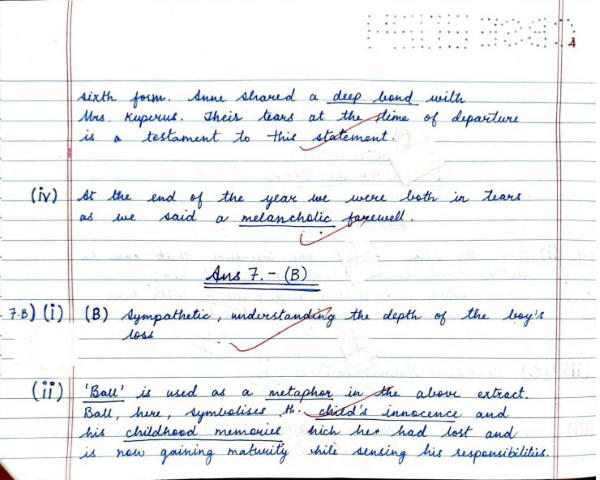 sixth form. Anne shared a deep bond with
Mrs. Kuperus. Their tears at the time of departure
is a testament to this statement.
(iv) At the end of the year we were both in tears
as we said a melancholic farewell.
Ans 7. - (B)
7.B) (i) (B) Sympathetic, understanding the depth of the boy's
loss
(ii) 'Ball' is used as a metaphor in the above extract.
Ball, here, symbolises th. child's innocence and
his childhood memories hich he had lost and
is now gaining maturity hile sensing his responsibilities.